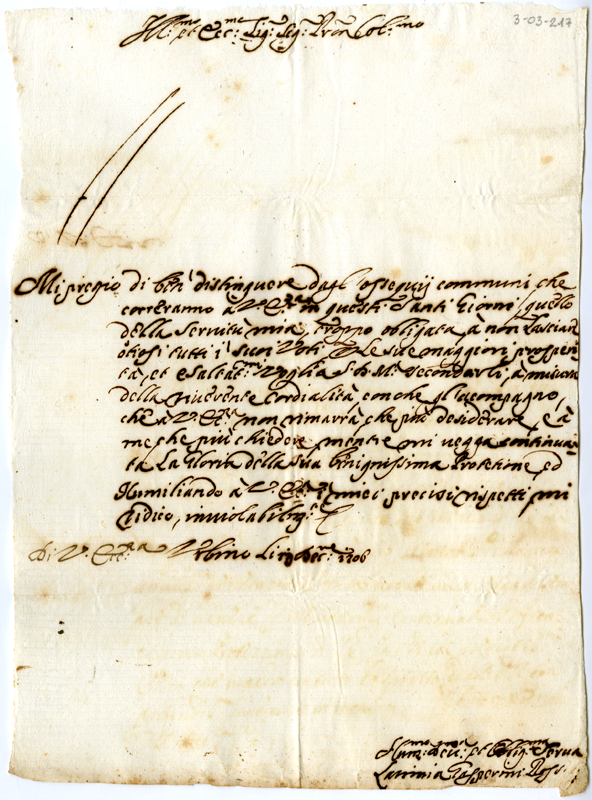 3-03-217
Ill.mo et Ecc.mo Sig.r Sig.r Pron Col.mo
Mi pregio di ben distinguere dagl'ossequij communi che
correranno à V. Ecc.za in questi Santi Giorni quello
della Servitù mia, troppo obligata à non lasciar
otiosi tutti i suoi Voti
tà, et esaltat.ni Voglia S. D. M. secondarli, à misura
della riverente cordialità con che gl'accompagno,
che à V. Ecc.za non rimarrà che più desiderare, e à
me che più chiedere, mentre mi vegga continua-
ta la Gloria della sua benignissima Protetione, ed
Humiliando à V. Ecc.za i miei precisi rispetti mi
ridico, inviolabilm.te
Di V. Ecc.za Urbino Li Dec.re 1706
Hum.ma Dev.ma et Oblig.ma Serva
Lavinia Gasperini Rossi